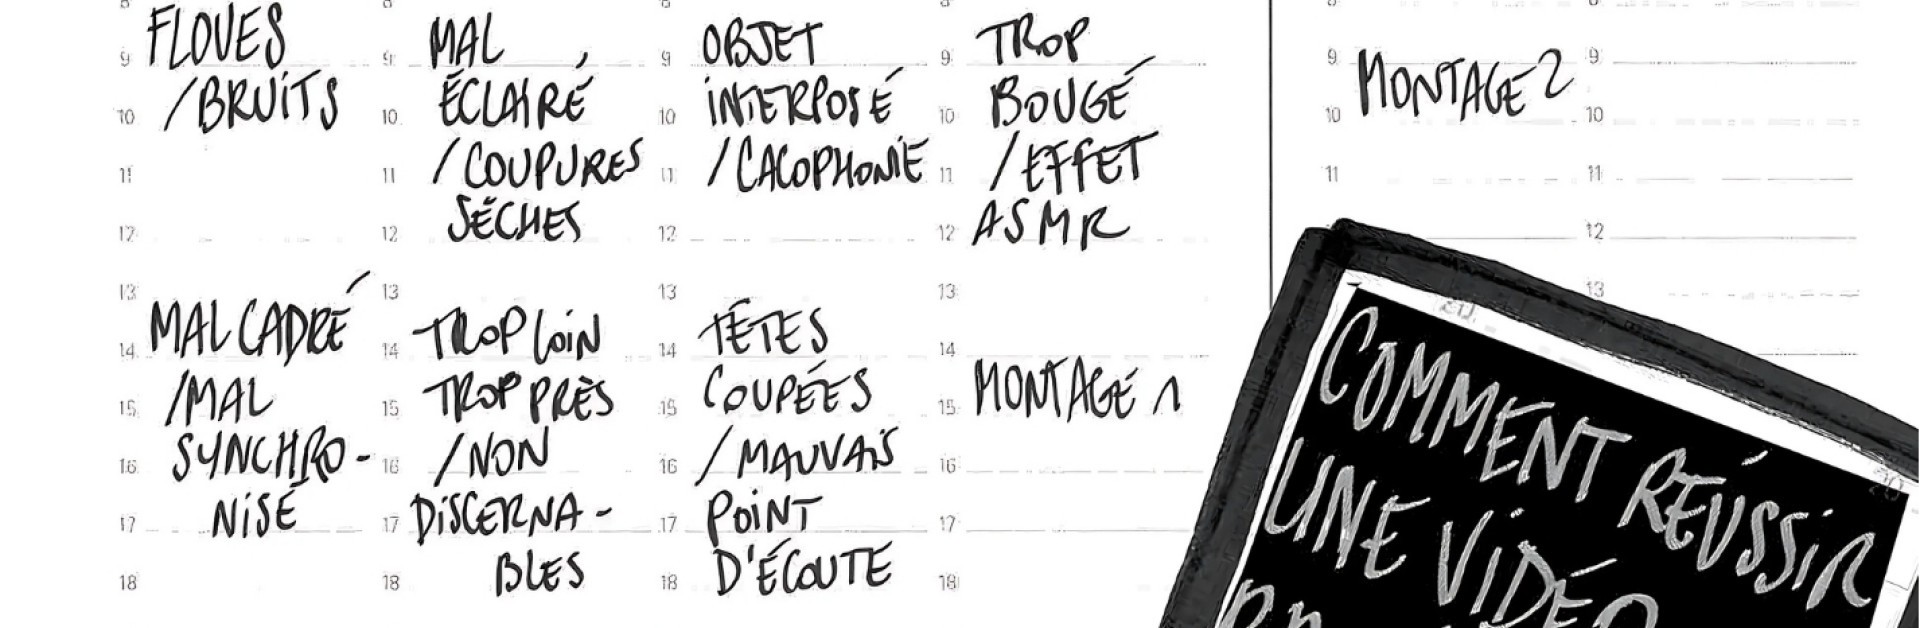 FLOUES
9
/BRUITS
10
11
12
13
MAL CADRÉ
14
/MAL
15
SYNCHRO-
16
NISÉ
17
18
MAL
9
ÉCLAIRÉ
10
/COUPURES
11
SÈCHES
12
13
TROP LOIN
14
TROP PRÈS
15
/NON
16
DISCERNA-
17
BLES
18
OBJET
9
INTERPOSÉ
10
/CACOPHONIE
11
12
13
TÊTES
14
COUPÉES
15
/MAUVAIS
16
POINT
17
D'ÉCOUTE
18
TROP
9
BOUGÉ
10
/EFFET
11
ASMR
12
13
14
MONTAGE 1
15
16
17
18
9
MONTAGE 2
10
11
9
10
11
12
13
COMMENT RÉUSSIR
UNE VIDÉO